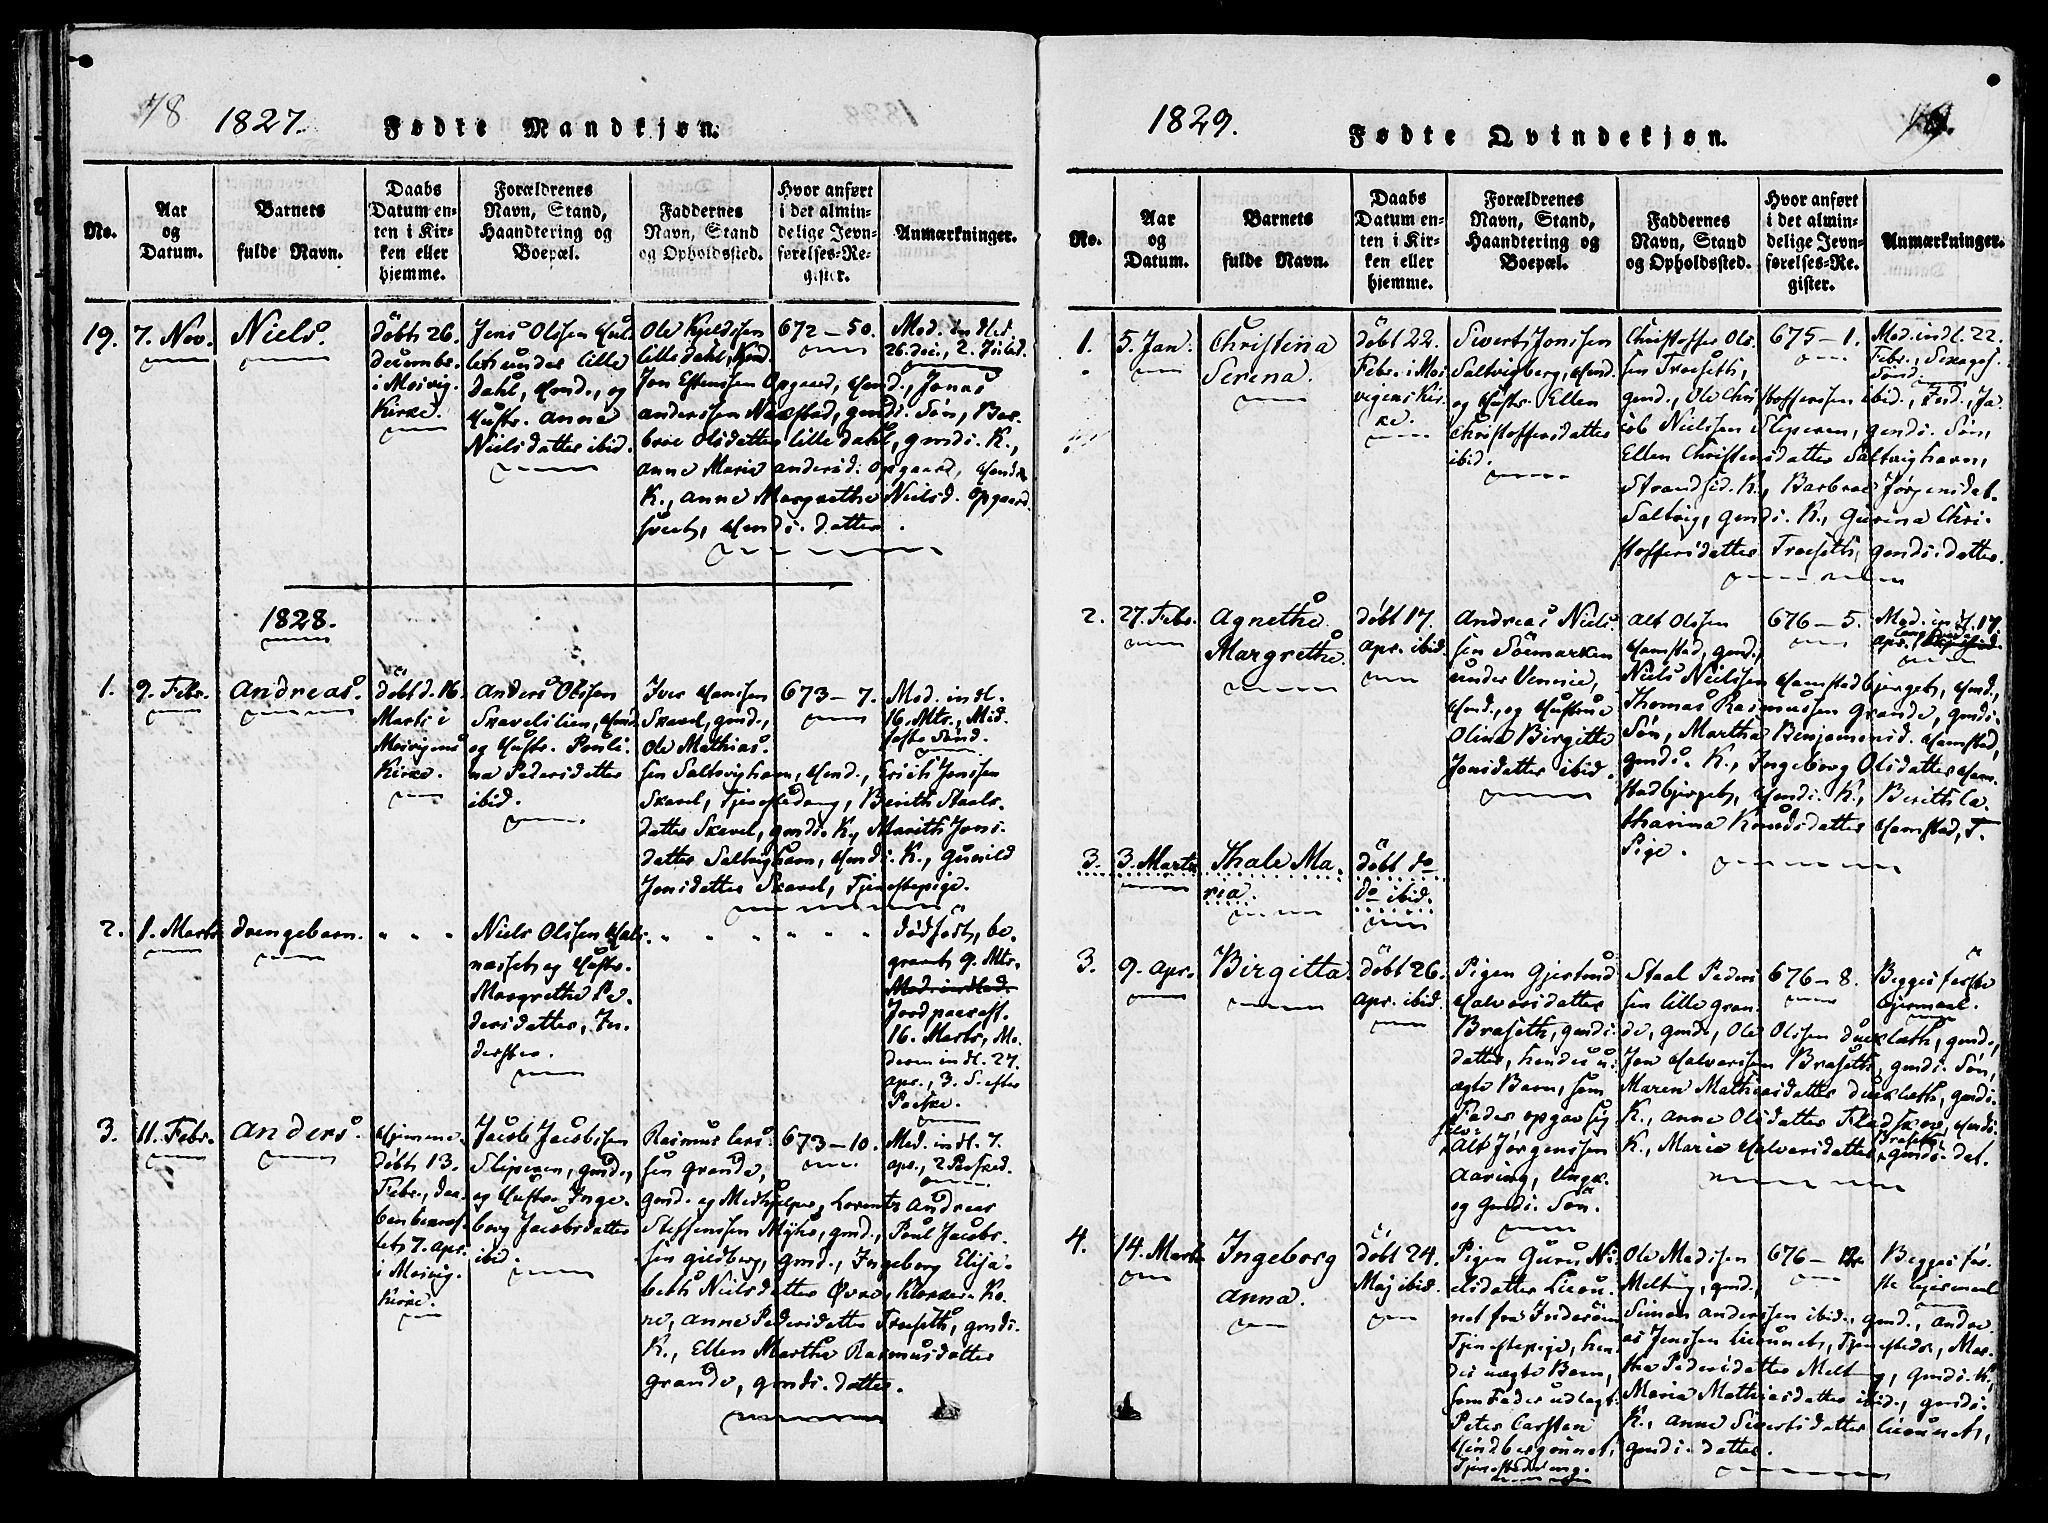 78 1827. Fødte Mandkjøn.
No.
Aar
og
Datum.
Barnets
fulde Navn.
Daabs
Datum en-
ten i Kir-
ken eller
hjemme.
Forældrenes
Navn, Stand,
Haandtering og
Boepæl.
Faddernes
Navn, Stand
og Opholdssted.
Hvor anført
i det almin-
delige Jevn-
førelses-Re-
gister.
Anmærkninger.
19. 7. Nov. Niels.
döbt 26.
decembr.
i Mosvig.
Kirke.
Jens Olssen
under Lille
dahl, og
Hustr. Anne
Nielsdatter ibid.
Ole Kjeldssen
Lilledahl,
Jon Opgaard, Jonas
Anderssen gmds. Søn, Bar-
broe Olsdatter Lilledahl, gmds. K.,
Anne Maria Andersd. Opgaard,
K., Anne Margrethe Nielsd. Opgaard
datter.
672 — 50.
Mod. indled.
26. dec., 2. Juled.
1828.
1. 9. Febr. Andreas.
döbt d. 16.
Marts i
Mosvigens
Kirke.
Anders Olssen
Skavelslien,
og Hustr. Pauli-
na Pedersdatter
ibid.
Iver Hanssen
Skavel, gmd.,
Ole Mathias-
sen Saltvighavn, Erich Jonssen
Skavel, Tjenestedreng, Berith Staals-
datter Skavel, gmds. K., Marith Jons-
datter Saltvighavn, K., Gunild
Jonsdatter Skavel, Tjenestepige.
673 — 7.
Mod. indl.
16. Mts., Mid-
faste Sönd.
2. 1. Marts drengebarn.
Niels Olssen
og Hustr.
Margrethe Pe-
dersdatter, In-
derster.
dödfödt, be-
gravet 9. Mts.
Jordpaakast.
16. Marts, Mo-
deren indl. 27.
apr., 3. S. efter
Paaske.
3. 11. Febr. Anders.
Hjemme-
döbt 13.
Febr., daa-
ben bekræf-
tet 7. apr.
i Mosvig.
Kirke.
Jacob Jacobssen
Sliperen, gmd.,
og Hustr. Inge-
borg Jacobsdatter
ibid.
Rasmus Lars-
sen Grande,
gmd. og Medhjelper, Lorents Andreas
Steffenssen Myhr, gmd., Poul Jacobs-
sen Gildberg, gmd., Ingeborg Elisa-
beth Nielsdatter Øvre, Klokker-Ko-
ne, Anne Pedersdatter Troeseth, gmds.
K., Ellen Martha Rasmusdatter
Grande, gmds. datter.
673 — 10.
Mod. indl. 7.
apr., 2 Paasked.
1829. Fødte Qvindekjøn.
No.
Aar
og
Datum.
Barnets
fulde Navn.
Daabs
Datum en-
ten i Kir-
ken eller
hjemme.
Forældrenes
Navn, Stand,
Haandtering og
Boepæl.
Faddernes
Navn, Stand
og Opholdssted.
Hvor anført
i det almin-
delige Jevn-
førelses-Re-
gister.
Anmærkninger.
1. 5. Jan. Christina
Serena.
döbt 22.
Febr. i Mos-
vigens Kir-
ke.
Sivert Jonssen
Saltvigberg,
og Hustr. Ellen
Christoffersdatter
ibid.
Christoffer Ols-
sen Troeseth,
gmd., Ole Christofferssen ibid., Ja-
cob Nielssen Sleperen, gmds. Søn,
Ellen Christensdatter Saltvighavn,
Strandsid. K., Barbroe Jörgensdat.
Saltvig, gmds. K., Gurina Chri-
stoffersdatter Troeseth, gmds. datter.
675 — 1.
Mod. indl. 22.
Febr., Sexages.
Sönd.
2. 27. Febr. Agnethe
Margrethe.
döbt 17.
apr. ibid.
Andreas Niels-
sen Söemarken
under Vennie,
og Hustrue
Olina Birgitte
Jonsdatter ibid.
Alt Olssen
Hamstad, gmd.,
Niels Nielssen Hamstadbjerget,
Thomas Rasmussen Grande, gmds.
Søn, Martha Benjaminsd. Hamstad,
gmds. K., Ingeborg Olsdatter Ham-
stadbjerget, K., Berith Ca-
tharina Knudsdatter Hamstad, T.
Pige.
676 — 5.
Mod. indl. 17.
apr.,
3. 3. Marts Thale Ma-
ria.
döbt do
do ibid.
3. 9. apr. Birgitta.
döbt 26.
apr. ibid.
Pigen Gjertrud
Halvorsdatter
Braseth, gmds.
datter, hendes u-
ægte Barn, som
Fader opgav sig
selv
Alt Jørgenssen
Aaring, Ungk.
og gmds. Søn.
Staal Peders-
sen Lille Gran-
de, gmd., Ole Olssen Duklæth, gmd.,
Jon Halvorssen Braseth, gmds. Søn,
Maren Mathiasdatter Duklæth, gmds.
K., Anne Olsdatter
K., Maria Halvorsdatter Braseth, gmds. dat.
676 — 8.
Begges første
Lejermaal.
4. 14. Marts Ingeborg
Anna.
döbt 24.
Maj ibid.
Pigen Guru Ni-
elsdatter
net fra Inderöen
Tjenestepige, hen-
des uægte Barn,
som Fader udlagt
Peter Carsten
Tjenestedreng.
Ole Madssen
Melting, gmd.,
Simon Anderssen ibid., gmd., Andre-
as Jenssen Tjenestedr., Mar-
tha Pedersdatter Melting, gmds. K.,
Maria Mathiasdatter ibid., gmds.
K., Anne Sivertsdatter
gmds. datter.
676 — 12.
Begges før-
ste Lejermaal